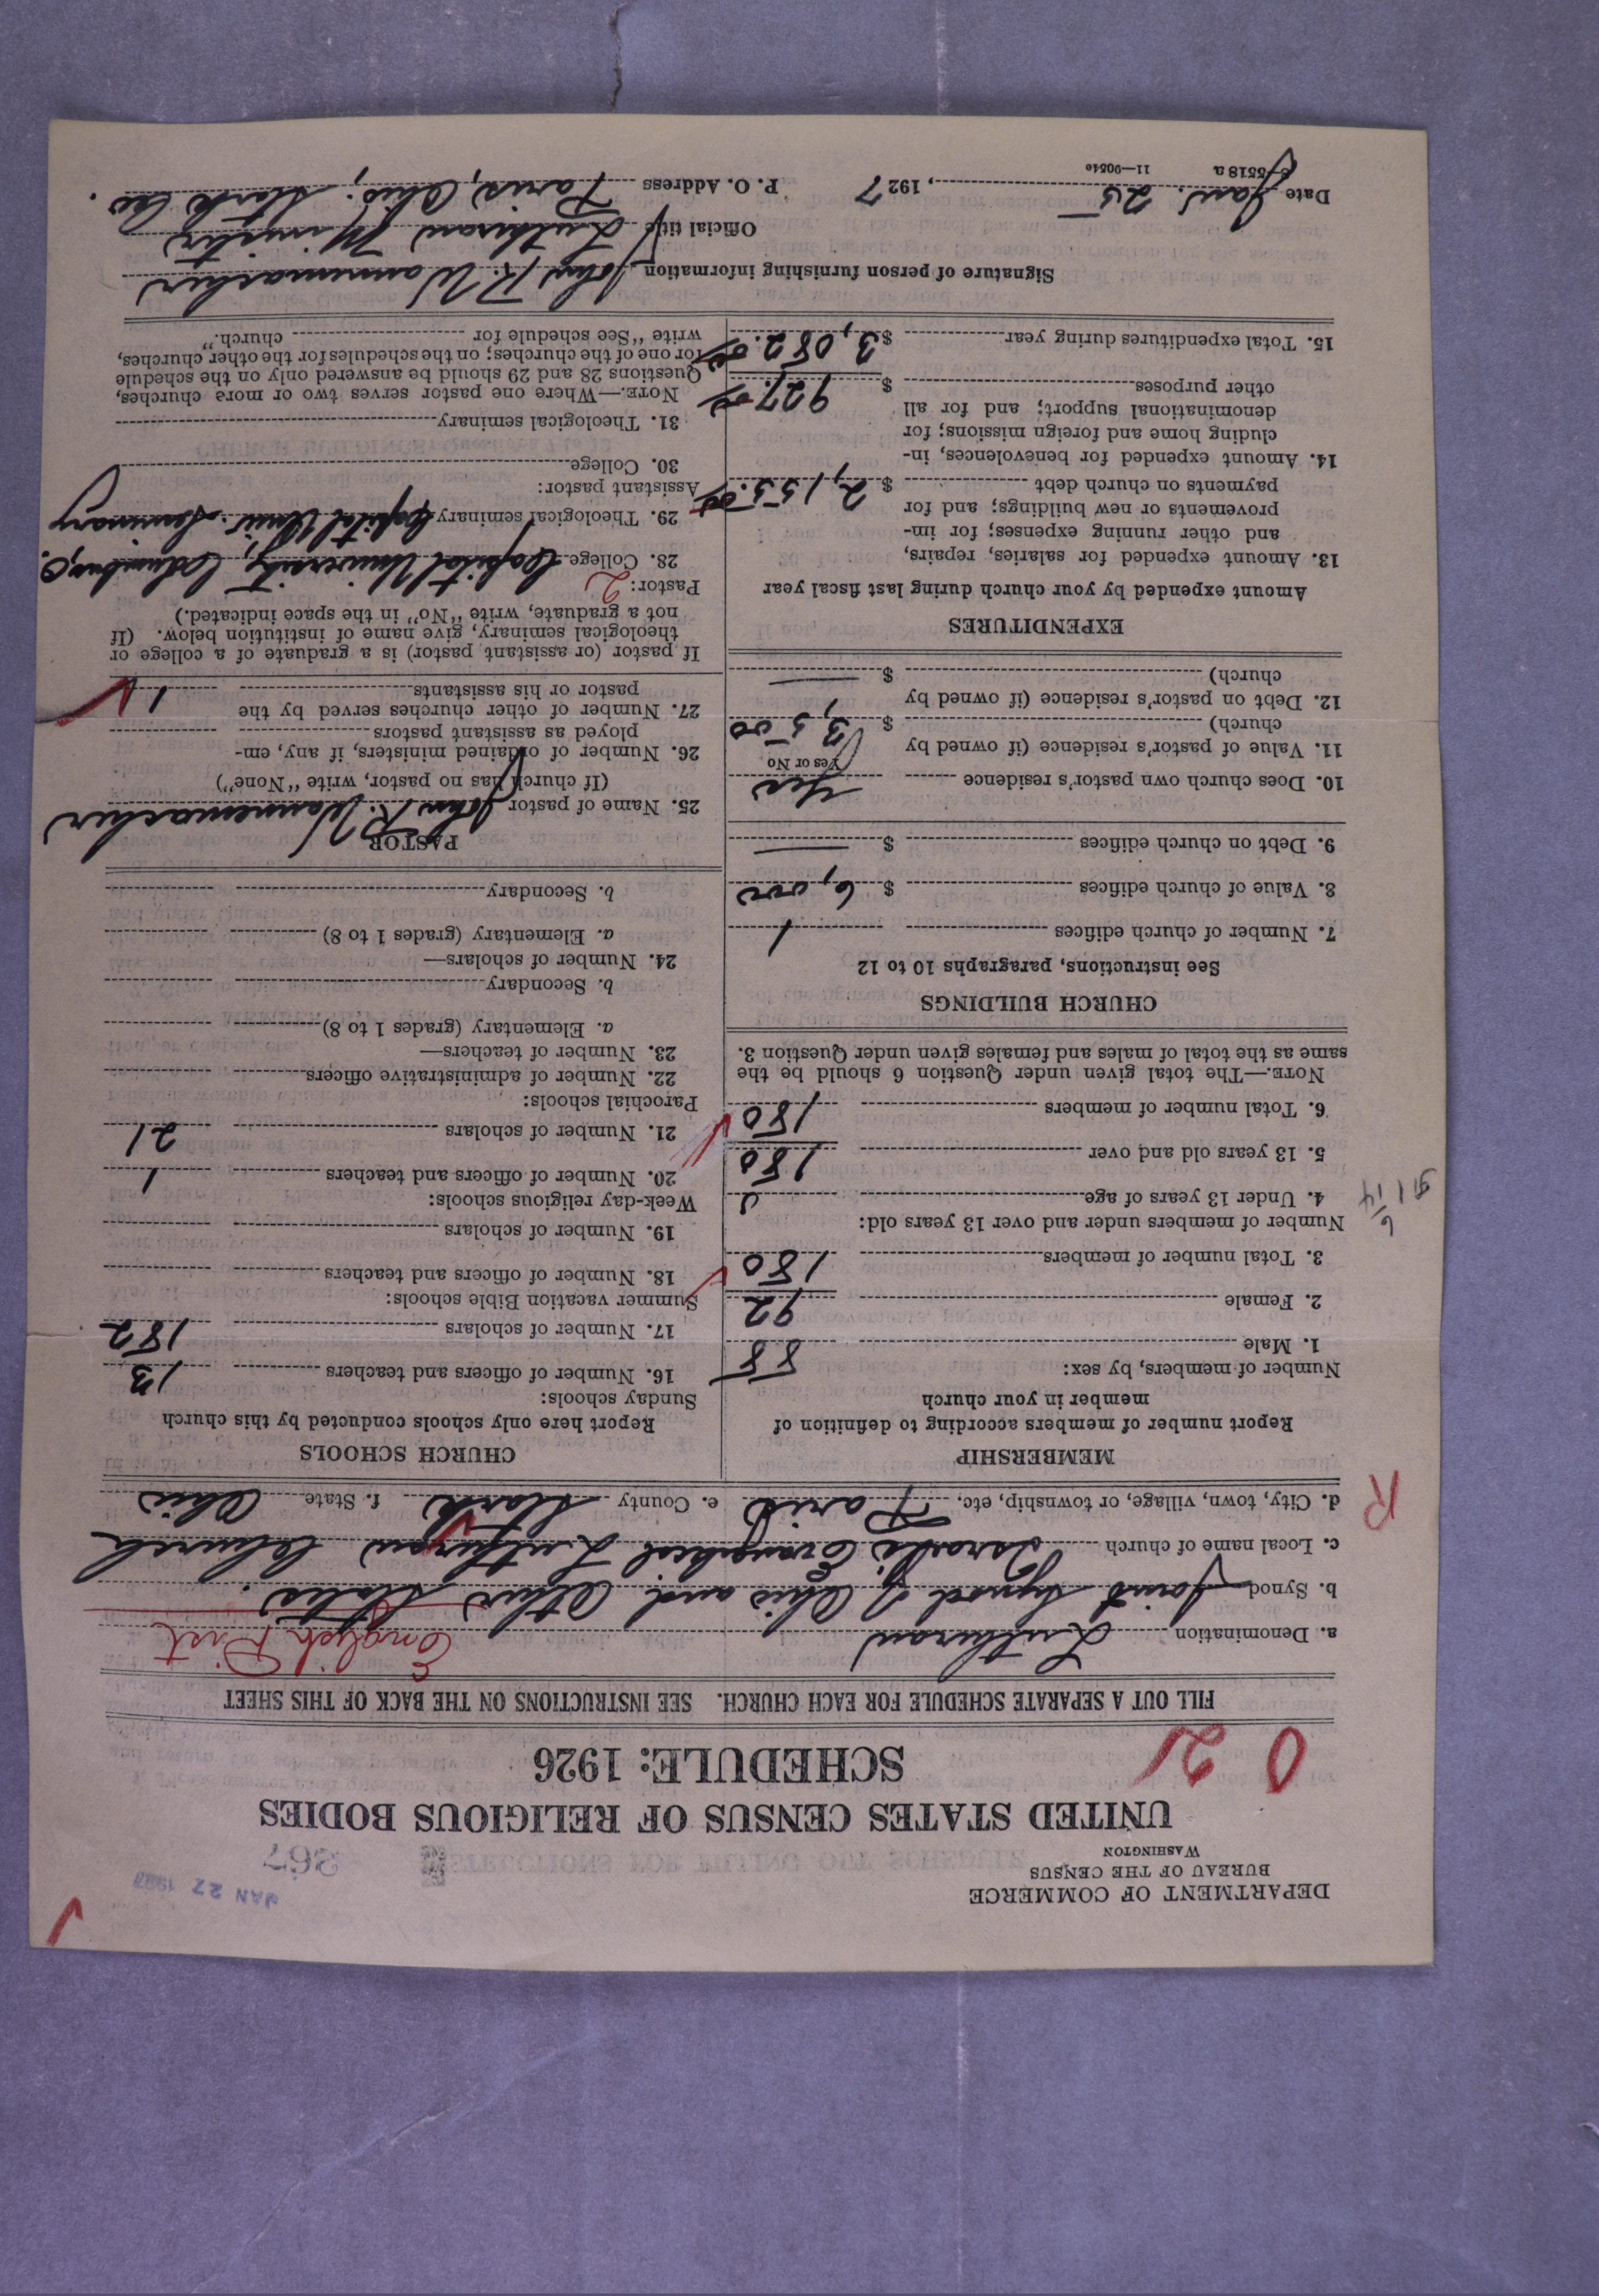 DEPARTMENT OF COMMERCE
BUREAU OF THE CENSUS
WASHINGTON
JAN 27 1927
367
UNITED STATES CENSUS OF RELIGIOUS BODIES
SCHEDULE: 1926
0 21
FILL OUT A SEPARATE SCHEDULE FOR EACH CHURCH. SEE INSTRUCTIONS ON THE BACK OF THIS SHEET
a. Denomination Lutheran English Dist
b. Synod Joint Synod of Ohio and Other States.
c. Local name of church Israels Evangelical Lutheran Church
d. City, town, village, or township, etc. Paris e. County Stark f. State Ohio
R
MEMBERSHIP
Report number of members according to definition of
member in your church
Number of members, by sex:
1. Male 88
2. Female 92
3. Total number of members 180
Number of members under and over 13 years old:
4. Under 13 years of age
5. 13 years old and over 180
6. Total number of members 180
NOTE.—The total given under Question 6 should be the
same as the total of males and females given under Question 3.
CHURCH BUILDINGS
See instructions, paragraphs 10 to 12
7. Number of church edifices 1
8. Value of church edifices $ 6,000
9. Debt on church edifices $ —
10. Does church own pastor's residence Yes
Yes or No
11. Value of pastor's residence (if owned by
church) $ 3,500
12. Debt on pastor's residence (if owned by
church) $ —
EXPENDITURES
Amount expended by your church during last fiscal year
13. Amount expended for salaries, repairs,
and other running expenses; for im-
provements or new buildings; and for
payments on church debt $ 2,155.00
14. Amount expended for benevolences, in-
cluding home and foreign missions; for
denominational support; and for all
other purposes $ 927.00
15. Total expenditures during year $ 3,082.00
CHURCH SCHOOLS
Report here only schools conducted by this church
Sunday schools:
16. Number of officers and teachers 13
17. Number of scholars 182
Summer vacation Bible schools:
18. Number of officers and teachers
19. Number of scholars
Week-day religious schools:
20. Number of officers and teachers 1
21. Number of scholars 21
Parochial schools:
22. Number of administrative officers
23. Number of teachers—
a. Elementary (grades 1 to 8)
b. Secondary
24. Number of scholars—
a. Elementary (grades 1 to 8)
b. Secondary
PASTOR
25. Name of pastor John R. Wannemacher
(If church has no pastor, write "None")
26. Number of ordained ministers, if any, em-
ployed as assistant pastors
27. Number of other churches served by the
pastor or his assistants 1
If pastor (or assistant pastor) is a graduate of a college or
theological seminary, give name of institution below. (If
not a graduate, write "No" in the space indicated.)
Pastor: 2
28. College Capital University, Columbus, O.
29. Theological seminary Capital Univ. Seminary
Assistant pastor:
30. College
31. Theological seminary
NOTE.—Where one pastor serves two or more churches,
Questions 28 and 29 should be answered only on the schedule
for one of the churches; on the schedules for the other churches,
write "See schedule for church."
Signature of person furnishing information John R. Wannemacher
Official title Lutheran Minister
Date Jan. 25, 1927 P. O. Address Paris, Ohio, Stark Co.
5518a 11—90540